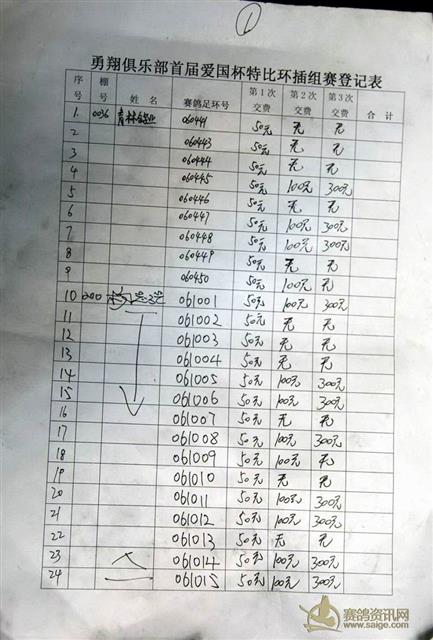 ①
勇翔俱乐部首届爱国杯特比环插组赛登记表
序号 棚号 姓名 赛鸽足环号 第1次交费 第2次交费 第3次交费 合计
1 0036 060441 50元 无 无
2 060443 50元 无 无
3 060444 50元 无 无
4 060445 50元 无 无
5 060446 50元 100元 300元
6 060447 50元 无 无
7 060448 50元 100元 300元
8 060449 50元 无 无
9 060450 50元 100元 无
10 061001 50元 100元 300元
11 061002 50元 无 无
12 061003 50元 无 无
13 061004 50元 无 无
14 061005 50元 100元 300元
15 061006 50元 100元 300元
16 061007 50元 无 无
17 061008 50元 100元 300元
18 061009 50元 100元 无
19 061010 50元 无 无
20 061011 50元 100元 300元
21 061012 50元 100元 300元
22 061013 50元 无 无
23 061014 50元 100元 300元
24 061015 50元 100元 300元
赛鸽资讯网
www.saige.com